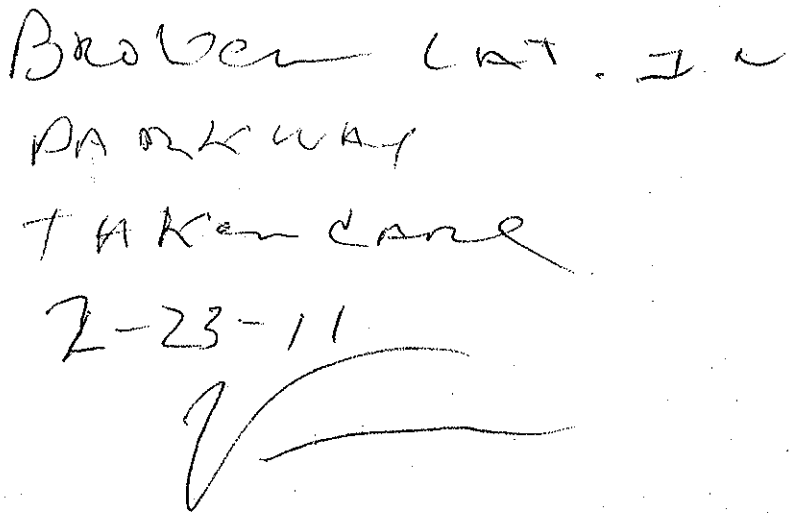 BROKEN LAT. IN
PARKWAY
TAKEN CARE
2-23-11